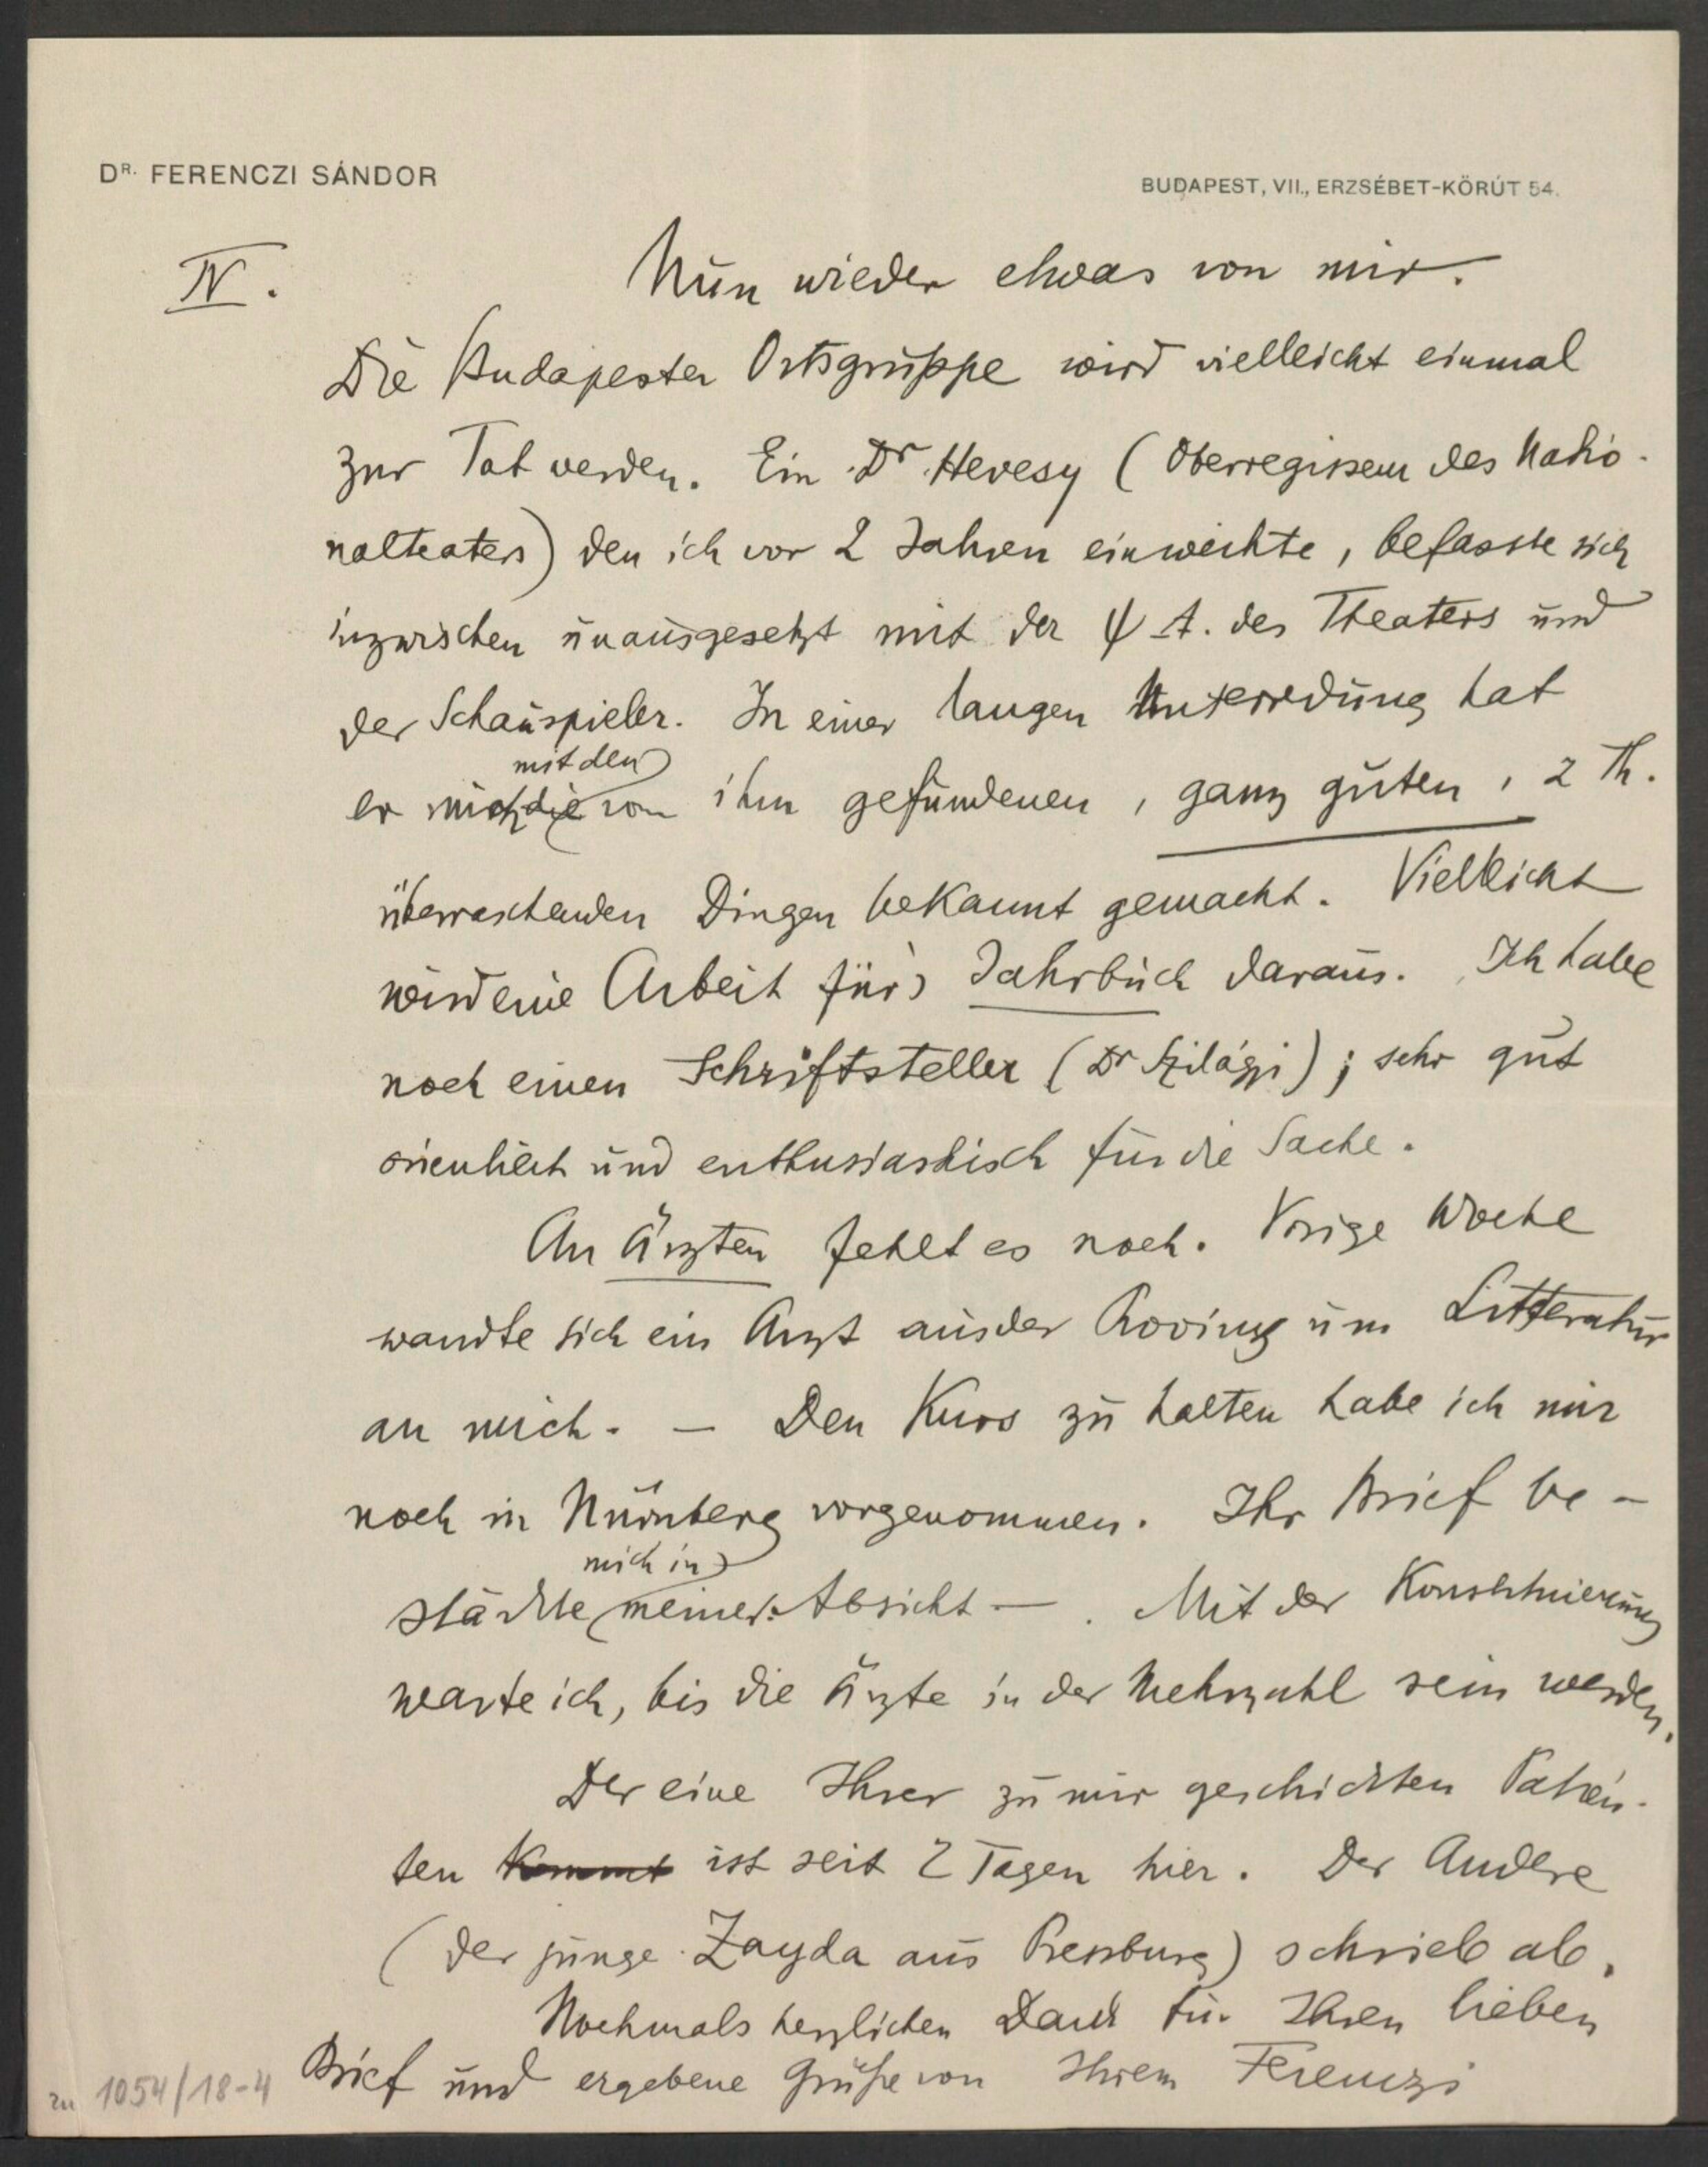 DR. FERENCZI SÁNDOR
BUDAPEST, VII., ERZSÉBET-KÖRÚT 54.
IV. Nun wieder etwas von mir.
Die Budapester Ortsgruppe wird vielleicht einmal
zur Tat werden. Ein Dr Hevesy (Oberregisseur des Natio-
nalteaters) den ich vor 2 Jahren einweihte, befasste sich
inzwischen unausgesetzt mit der ψ A. des Theaters und
der Schauspieler. In einer langen Unterredung hat
mit den
er mich die von ihm gefundenen, ganz guten, z Th.
überraschenden Dingen bekannt gemacht. Vielleicht
wird eine Arbeit für's Jahrbuch daraus. Ich habe
noch einen Schriftsteller (Dr Szilágyi); sehr gut
orientiert und enthusiastisch für die Sache.
An Ärzten fehlt es noch. Vorige Woche
wandte sich ein Arzt aus der Provinz um Litteratur
an mich. – Den Kurs zu halten habe ich mir
noch in Nürnberg vorgenommen. Ihr Brief be-
mich in
stärkte meiner Absicht –. Mit der Konstituierung
warte ich, bis die Ärzte in der Mehrzahl sein werden.
Der eine Ihrer zu mir geschickten Patien-
ten kommt ist seit 2 Tagen hier. Der Andere
(der junge Zayda aus Pressburg) schrieb ab.
Nochmals herzlichen Dank für Ihren lieben
Brief und ergebene Grüße von Ihrem Ferenczi
zu 1054/18-4